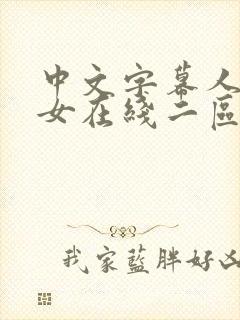 中文字幕人
女在綫二區
我家藍胖好凶